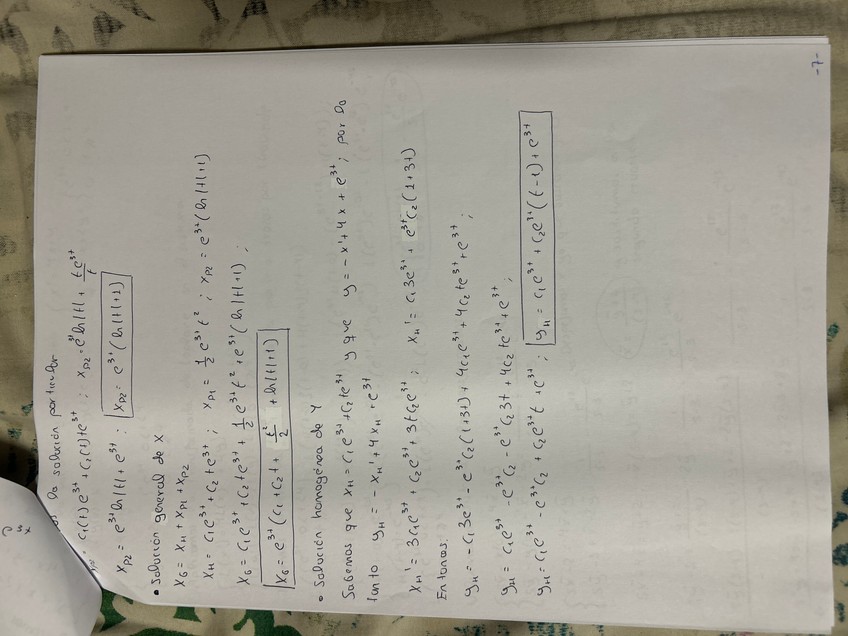 la solución particular
= c₁(t)e³ᵗ + c₂(t)te³ᵗ ; xₚ₂ = e³ᵗ ln|t| + t e³ᵗ/t
xₚ₂ = e³ᵗ ln|t| + e³ᵗ ; xₚ₂ = e³ᵗ(ln|t|+1)
• Solución general de X
x_G = x_H + xₚ₁ + xₚ₂
x_H = c₁e³ᵗ + c₂te³ᵗ ; xₚ₁ = 1/2 e³ᵗt² ; xₚ₂ = e³ᵗ(ln|t|+1)
x_G = c₁e³ᵗ + c₂te³ᵗ + 1/2 e³ᵗt² + e³ᵗ(ln|t|+1) ;
x_G = e³ᵗ(c₁ + c₂t + t²/2 + ln|t|+1)
• Solución homogénea de Y
Sabemos que x_H = c₁e³ᵗ + c₂te³ᵗ y que y = -x' + 4x + e³ᵗ ; por lo
tanto y_H = -x_H' + 4x_H + e³ᵗ
x_H' = 3c₁e³ᵗ + c₂e³ᵗ + 3tc₂e³ᵗ ; x_H' = c₁3e³ᵗ + e³ᵗc₂(1+3t)
Entonces:
y_H = -c₁3e³ᵗ - e³ᵗc₂(1+3t) + 4c₁e³ᵗ + 4c₂te³ᵗ + e³ᵗ ;
y_H = c₁e³ᵗ - e³ᵗc₂ - e³ᵗc₂3t + 4c₂te³ᵗ + e³ᵗ ;
y_H = c₁e³ᵗ - e³ᵗc₂ + c₂e³ᵗt + e³ᵗ ; y_H = c₁e³ᵗ + c₂e³ᵗ(t-1) + e³ᵗ
-7-